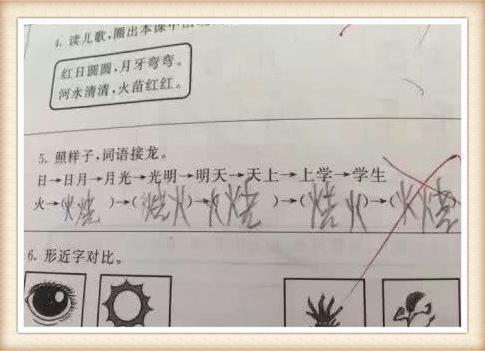 4. 读儿歌,圈出本课中
红日圆圆,月牙弯弯。
河水清清,火苗红红。
5. 照样子,词语接龙。
日→日月→月光→光明→明天→天上→上学→学生
火→火烧 )→(烧火)→火烧 )→(烧火)→(火烧)
6. 形近字对比。